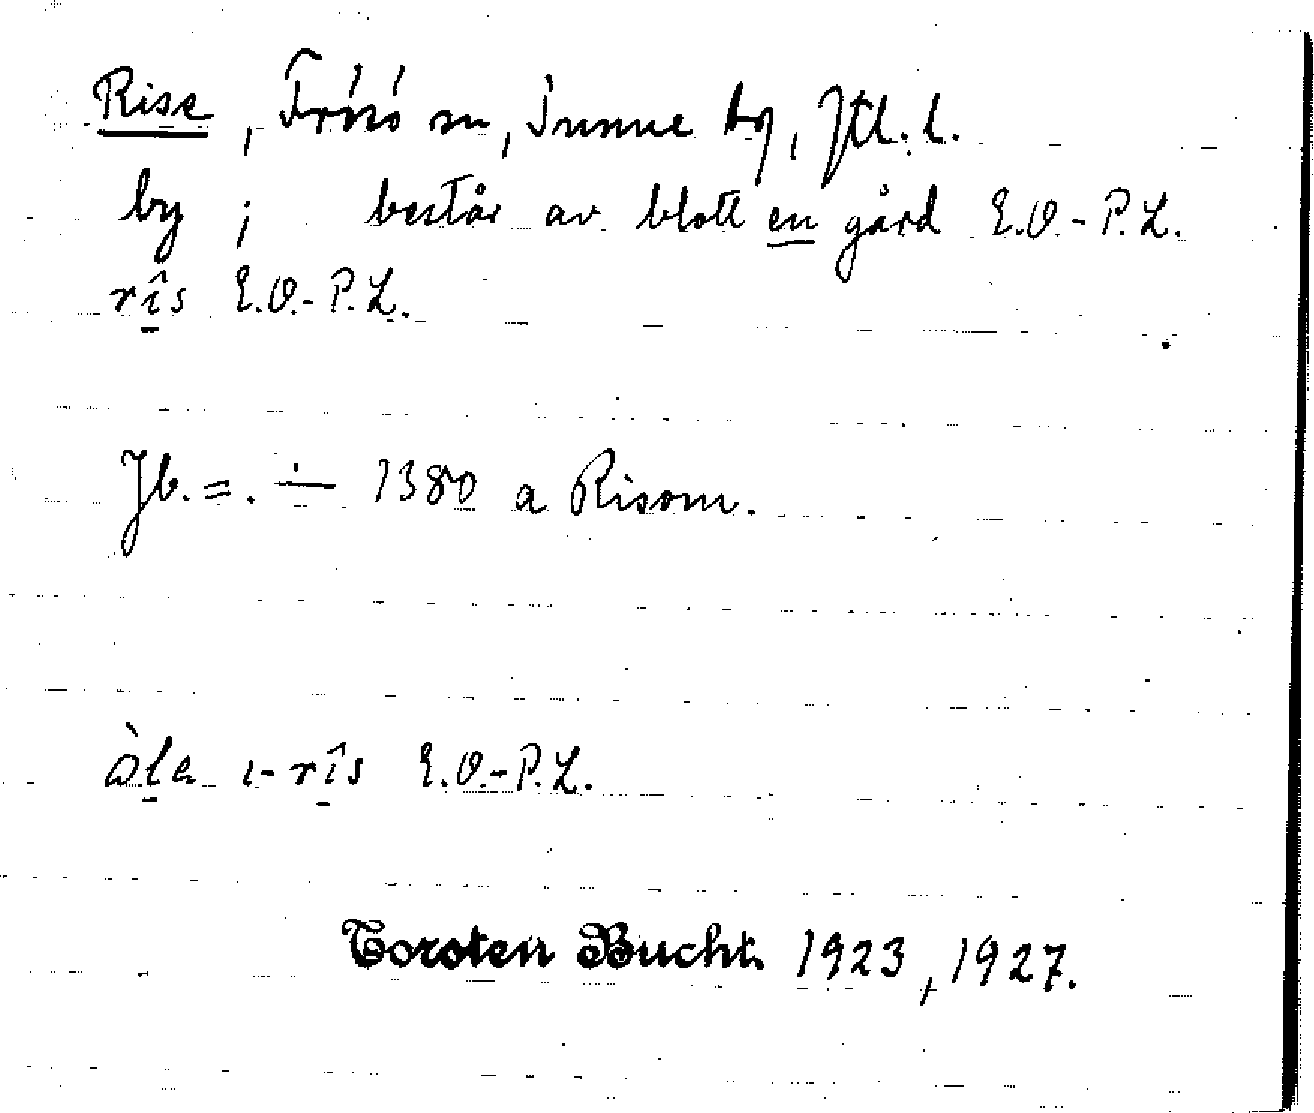 Rise, Frösö sn, Sunne tg, Jtl. l.
by ; består av blott en gård E.O.-P.L.
rîs E.O.-P.L.
Jb. =. ∸ 1380 a Risom.
òla ı-rîs E.O.-P.L.
Torsten Bucht. 1923, 1927.